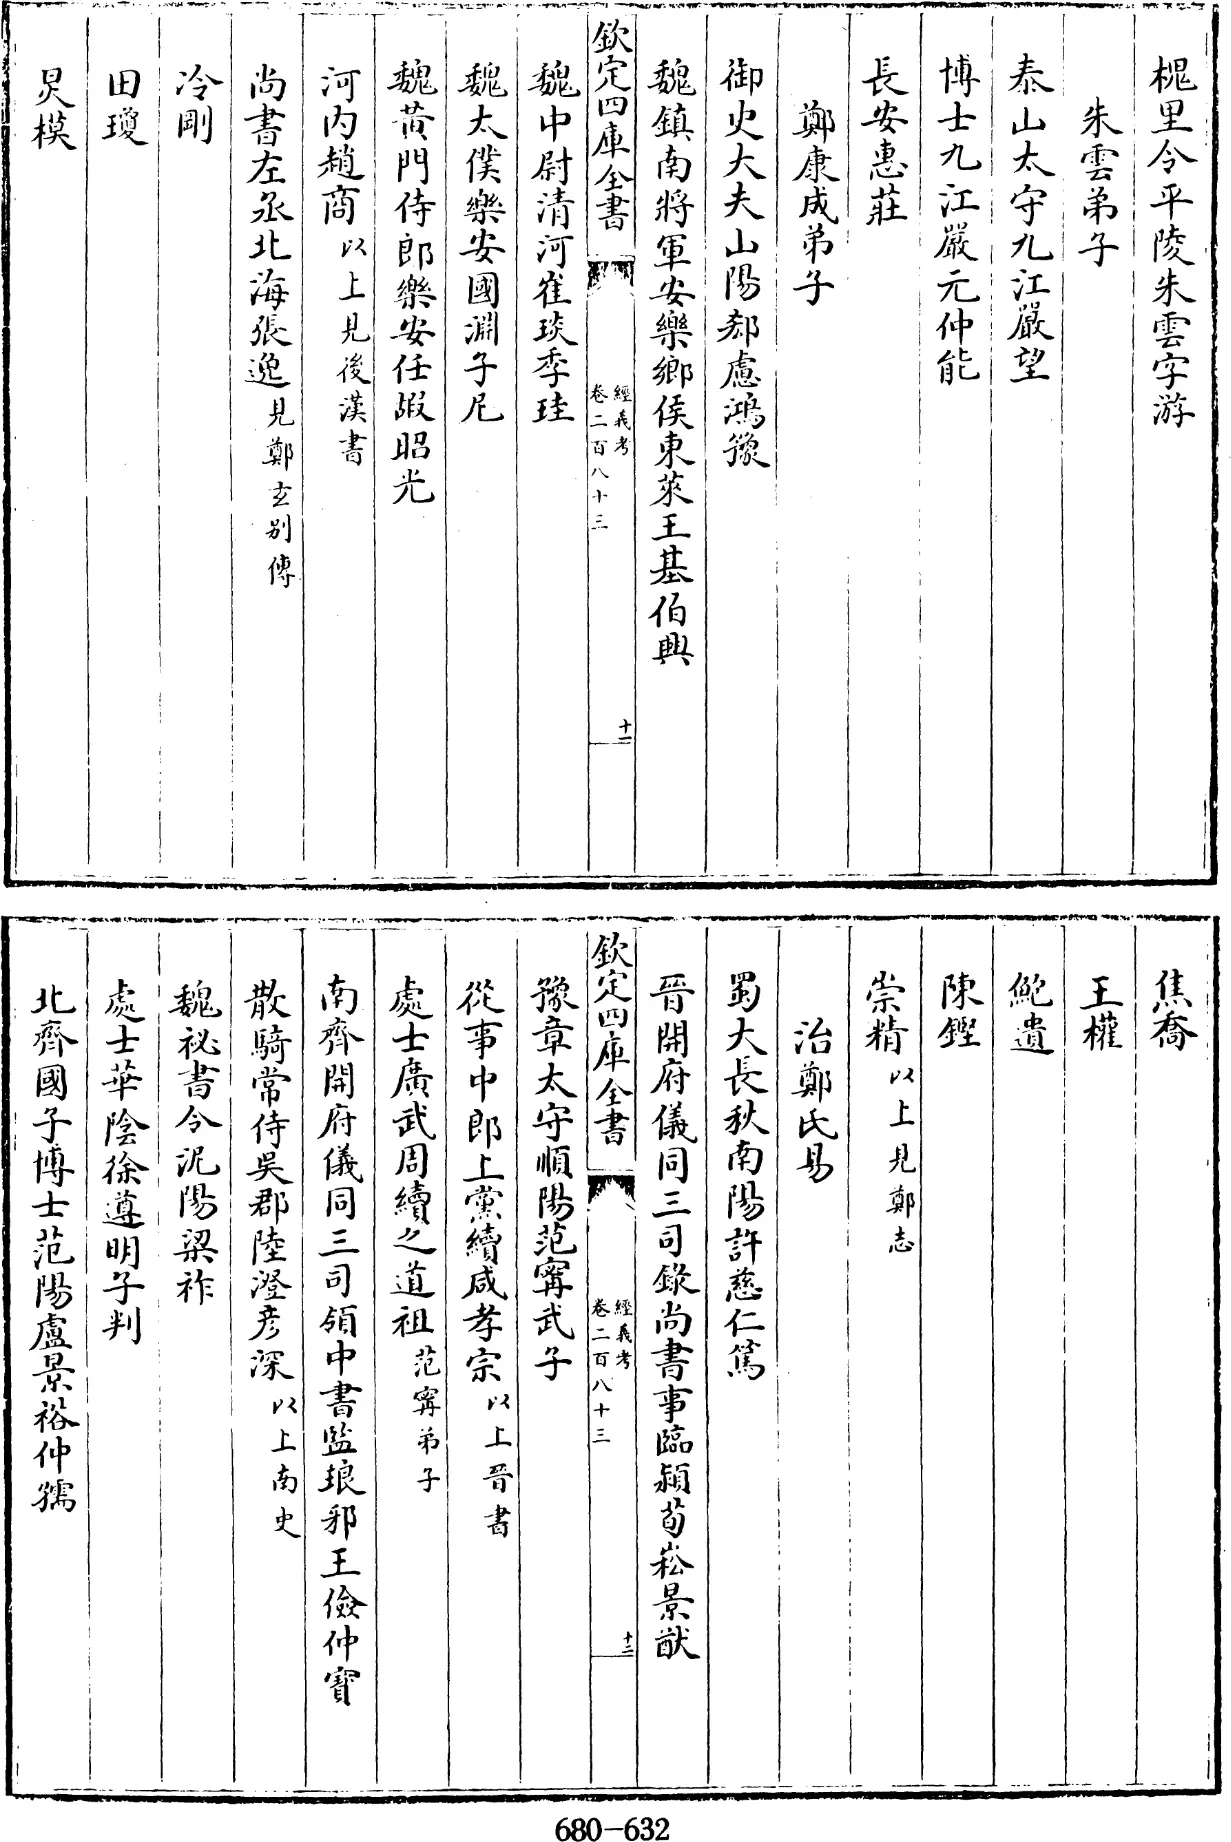 槐里令平陵朱雲字游
朱雲弟子
泰山太守九江嚴望
博士九江嚴元仲能
長安惠莊
鄭康成弟子
御史大夫山陽郗慮鴻豫
魏鎮南將軍安樂鄉侯東萊王基伯輿
欽定四庫全書
經義考
卷二百八十三
十一
魏中尉清河崔琰季珪
魏太僕樂安國淵子尼
魏黃門侍郎樂安任嘏昭光
河內趙商以上見後漢書
尚書左丞北海張逸見鄭玄別傳
冷剛
田瓊
炅模
焦喬
王權
鮑遺
陳鏗
崇精以上見鄭志
治鄭氏易
蜀大長秋南陽許慈仁篤
晉開府儀同三司錄尚書事臨潁荀崧景猷
欽定四庫全書
經義考
卷二百八十三
十二
豫章太守順陽范甯武子
從事中郎上黨續咸孝宗以上晉書
處士廣武周續之道祖范甯弟子
南齊開府儀同三司領中書監琅邪王儉仲寶
散騎常侍吳郡陸澄彥深以上南史
魏祕書令泥陽梁祚
處士華陰徐遵明子判
北齊國子博士范陽盧景裕仲孺
680-632